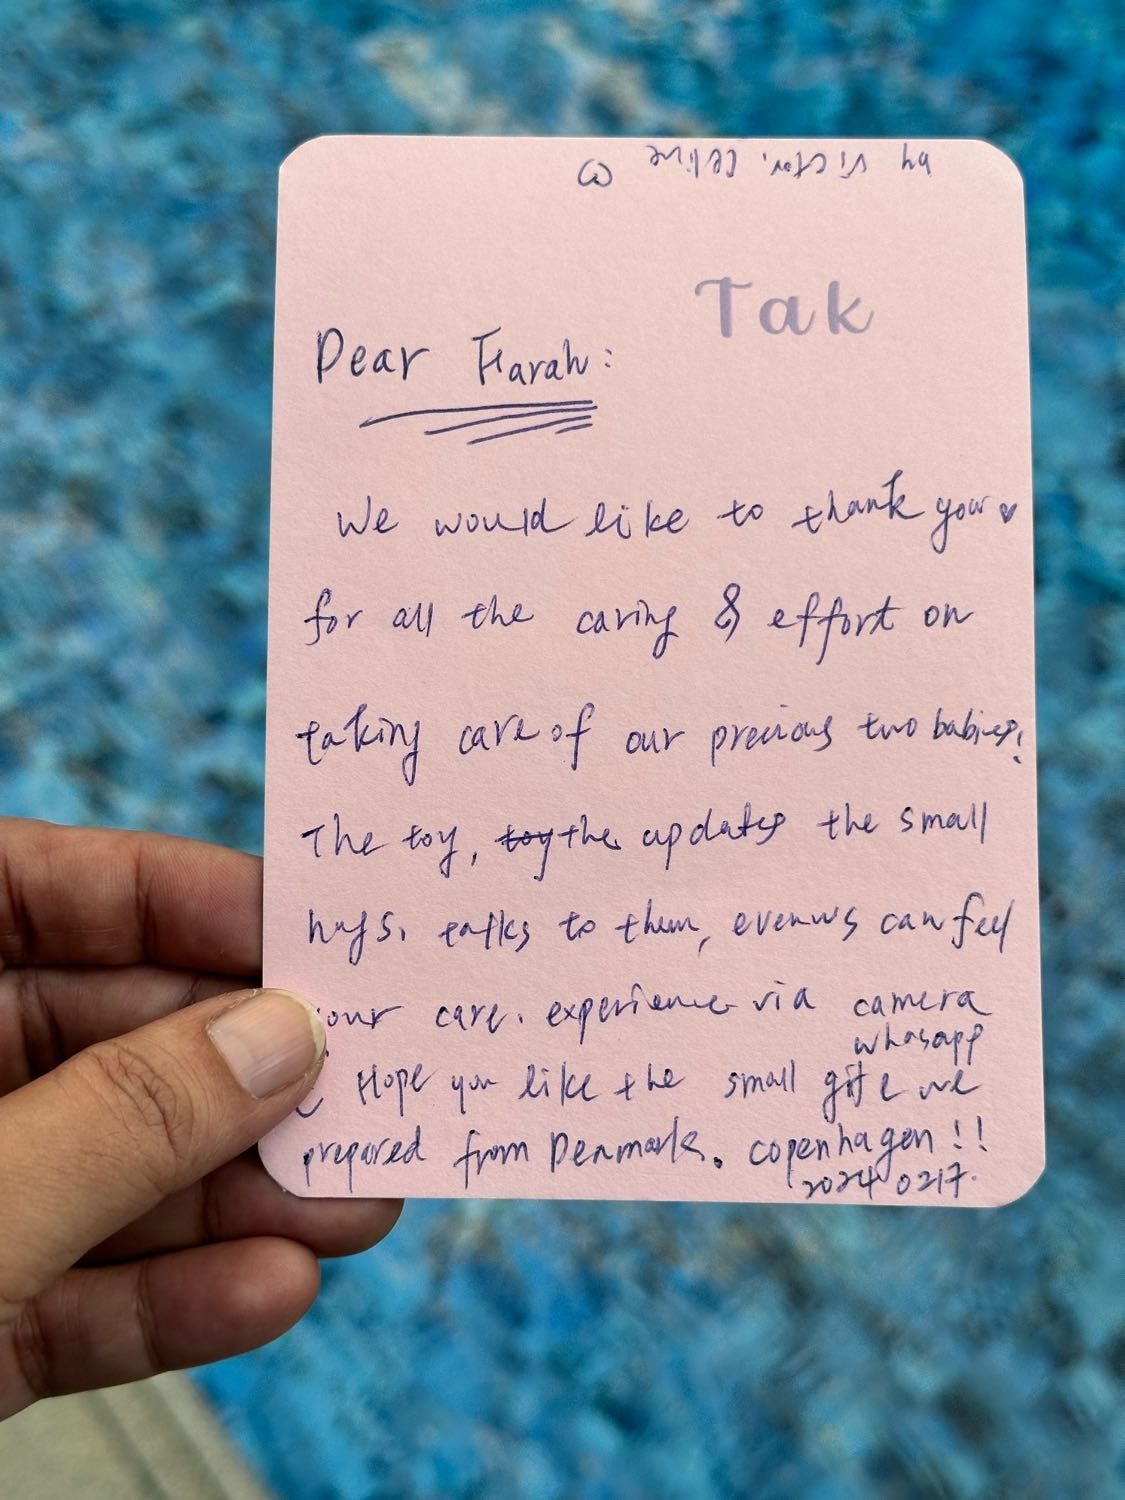 by Victor. Celine
Tak
Dear Farah:
We would like to thank you ♥
for all the caring & effort on
taking care of our precious two babies!
The toy, toy the updates the small
hugs. talks to them, evenws can feel
your care. experience via camera
whasapp
Hope you like the small gift we
prepared from Denmark. copenhagen!!
2024 0217.